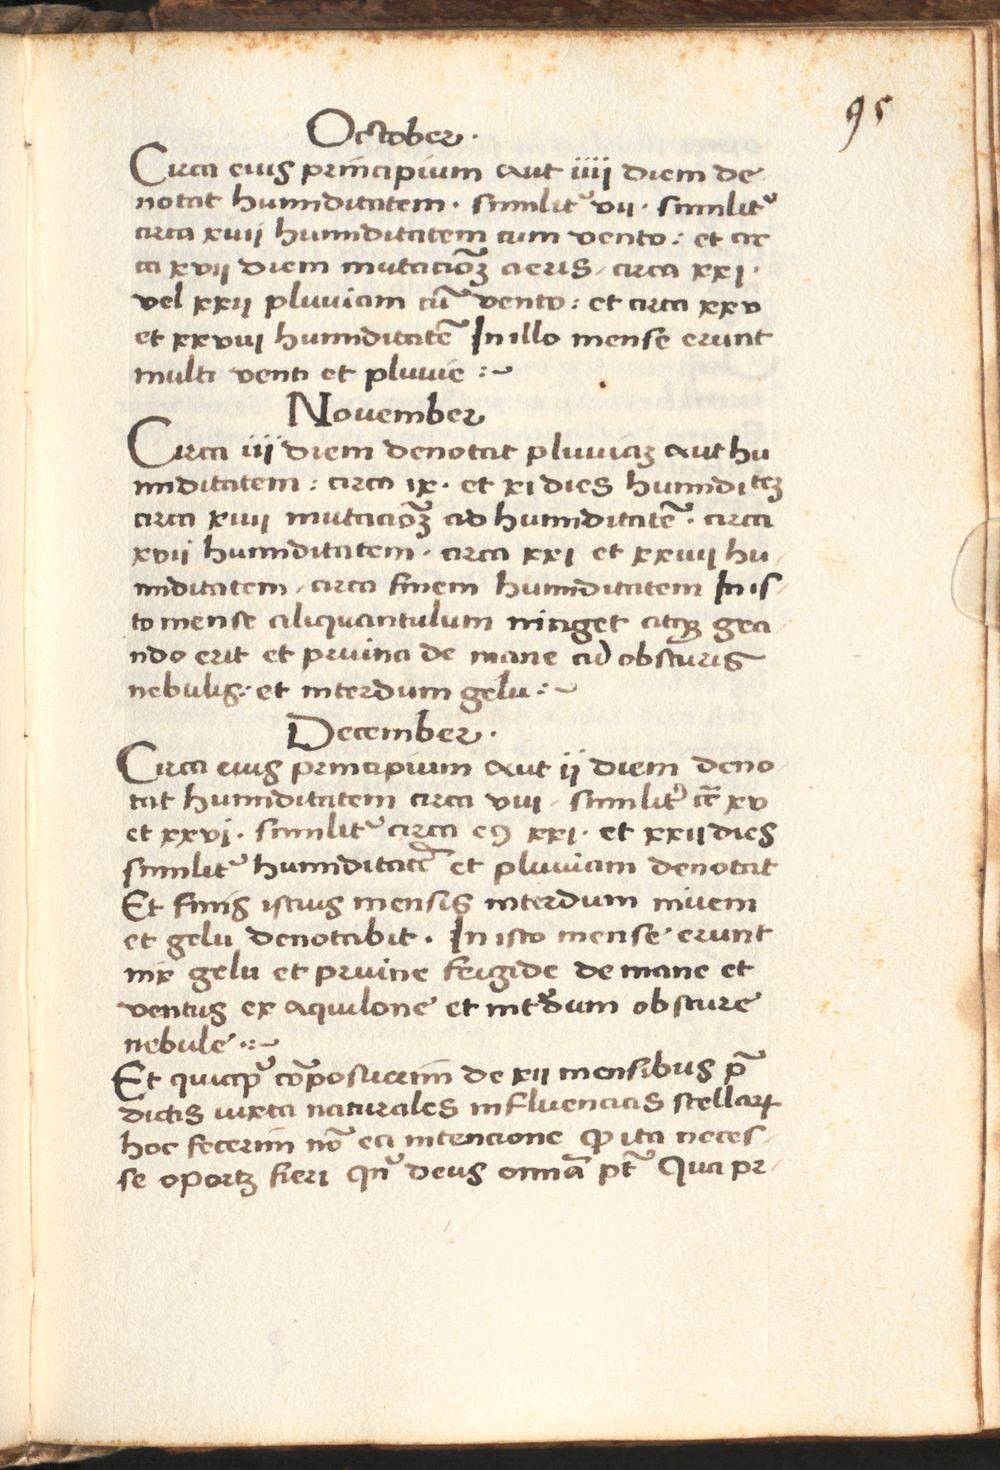 95
October ·
Circa eius principium aut iiii diem de
notat humiditatem · similit᷒ vii · similit᷒
circa xiiij humiditatem cum vento : et cir
ca xvij diem mutacioꝫ aeris / circa xxi ·
vel xxij pluviam cū vento : et circa xxv
et xxviii humiditatē In illo mense erunt
multi venti et pluvie :~
November
Circa iij diem denotat pluviaꝫ aut hu
miditatem : circa ix · et xi dies humiditeꝫ
circa xiiij mutacioꝫ ad humiditatē · circa
xvij humiditatem · circa xxi et xxiiij hu /
miditatem / circa finem humiditatem In is /
to mense aliquantulum ninget atqꝫ gra
ndo erit et pruina de mane cū obscuris
nebulis : et interdum gelu :~
December ·
Circa eius principium aut ij diem deno
tat humiditatem circa viii / similit᷒ cc̄ xv
et xxvj · similit᷒ circa eꝯ xxi · et xxij dies
similit᷒ humiditatē et pluviam denotat
Et finis istius mensis interdum nivem
et gelu denotabit · In isto mense erunt
nix gelu et pruine frigide de mane et
ventus ex aquilone et int᷒dum obscure
nebule :~
Et quicq̄ cōposuerim de xii mensibus p̄
dictis iuxta naturales influencias stellaꝝ
hoc fecerim nō ea intencione ꝙ ita neces /
se oportꝫ fieri qn᷒ deus omnia pt᷒ Qua pr /